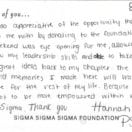 of you...
so appreciative of the opportunity tha
me with by donating to the foundatio
weekend was eye opening for me, allowe
my leadership skills and to take
great ideas back to my chapter. the
and memories I made here will ho
for the rest of my life. Because
to be more empowered within
Sigma. Thank you Hannah
SIGMA SIGMA SIGMA FOUNDATION